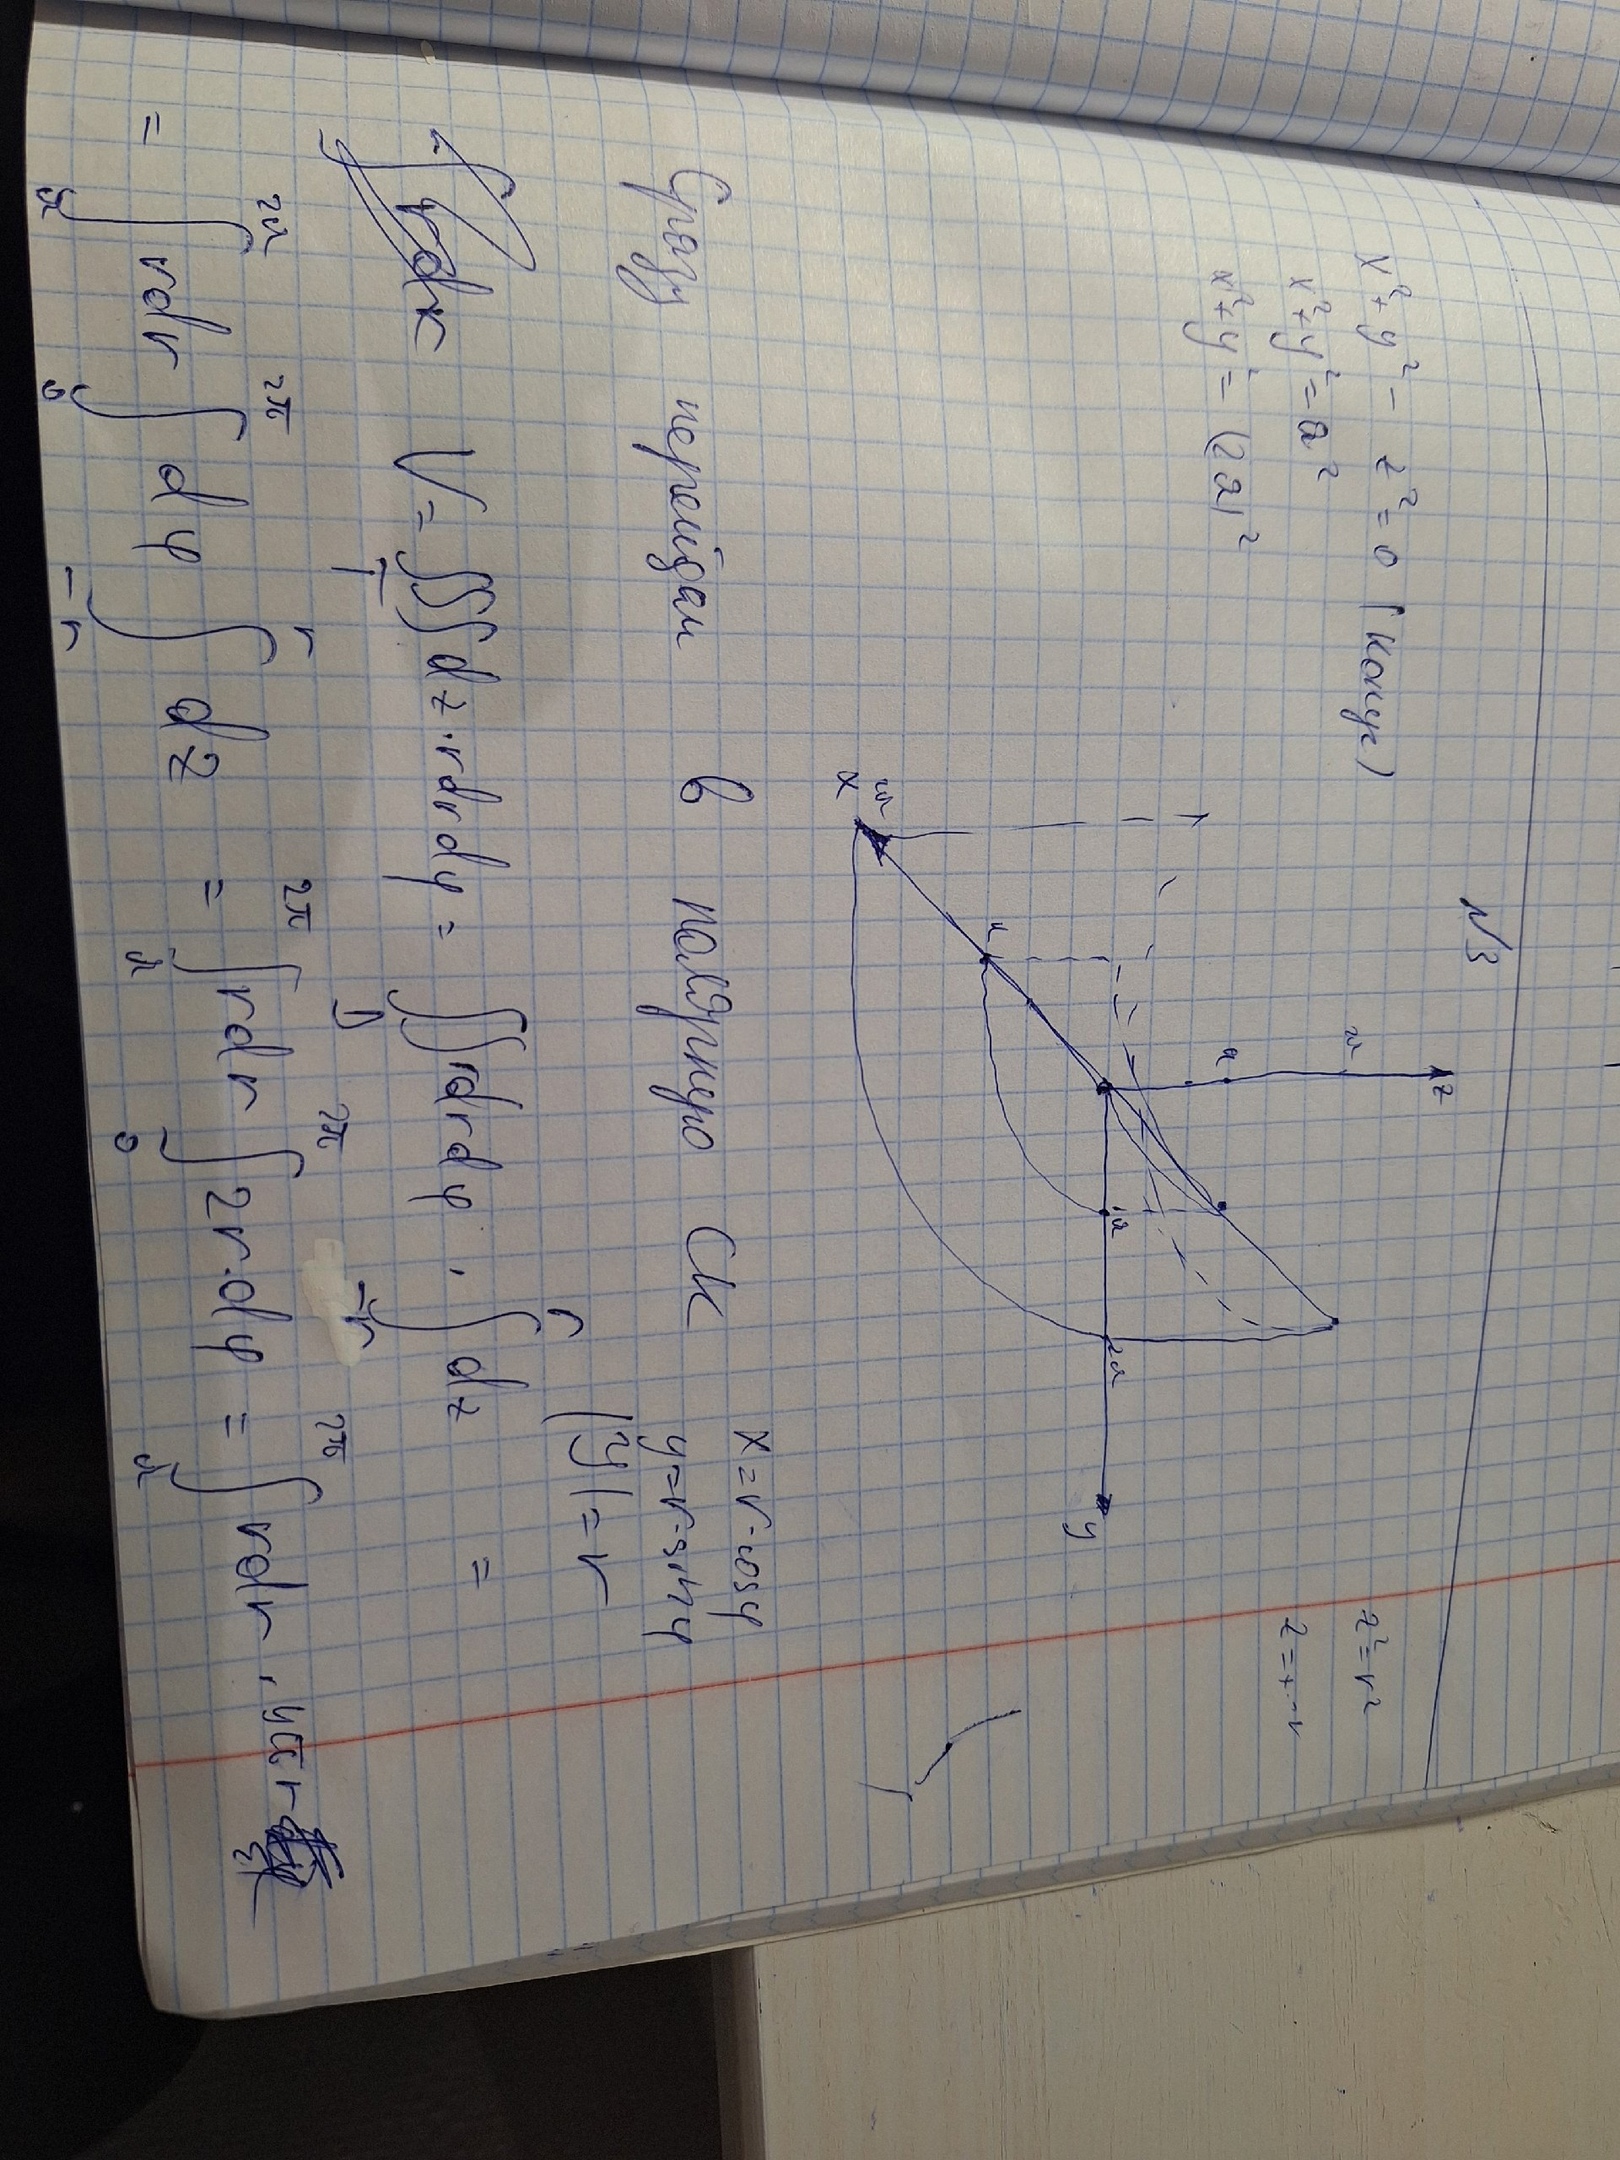 №3
x²+y² - z²=0 (конус)
x²+y²=a²
x²+y²= (2a)²
z
2a
a
a
2a
y
a
2a
x
z²=r²
z=+-r
Сразу перейдем в полярную СК
x=r·cosφ
y=r·sinφ
|Y|=r
V=∭_T dz·rdrdφ= ∬_D rdrdφ · ∫_{-r}^{r} dz =
= ∫_a^{2a} rdr ∫_0^{2π} dφ ∫_{-r}^{r} dz = ∫_a^{2π} rdr ∫_0^{2π} 2r·dφ = ∫_a^{2π} rdr · 4πr